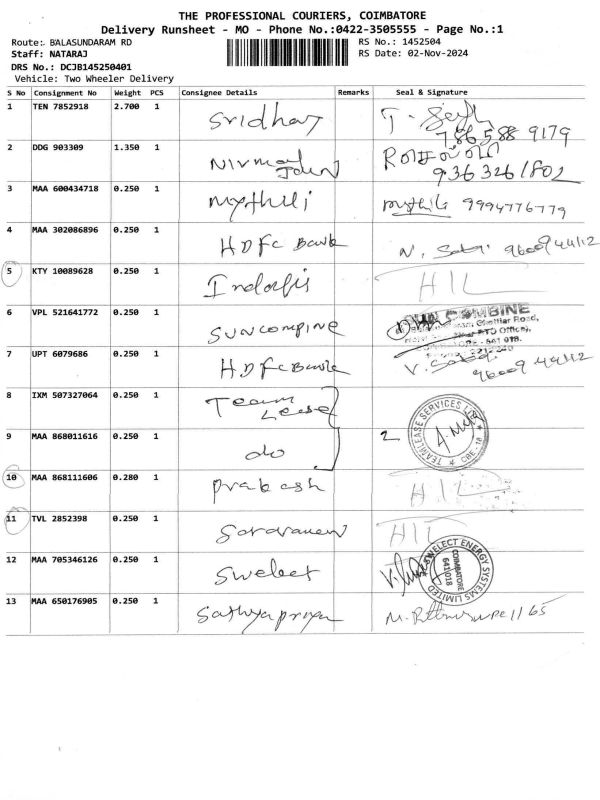 THE PROFESSIONAL COURIERS, COIMBATORE
Delivery Runsheet - MO - Phone No.:0422-3505555 - Page No.:1
Route:. BALASUNDARAM RD RS No.: 1452504
Staff: NATARAJ RS Date: 02-Nov-2024
DRS No.: DCJB145250401
Vehicle: Two Wheeler Delivery
S No Consignment No Weight PCS Consignee Details Remarks Seal & Signature
1 TEN 7852918 2.700 1 Sridhar T.
786588 9179
2 DDG 903309 1.350 1 Nirmal John
9363261802
3 MAA 600434718 0.250 1 Mythili mythili 9994776779
4 MAA 302086896 0.250 1 HDFC Bank N. 9600944112
5 KTY 10089628 0.250 1 HIL
6 VPL 521641772 0.250 1 SUNCOMBINE COMBINE
Chettiar Road,
RTO Office),
641 018.
7 UPT 6079686 0.250 1 HDFC Bank V. 9600944112
8 IXM 507327064 0.250 1 Team Lease
TEAMLEASE SERVICES LTD
9 MAA 868011616 0.250 1 do 2
CBE-18
10 MAA 868111606 0.280 1 Prakash HIL
11 TVL 2852398 0.250 1 Saravanan HIL
12 MAA 705346126 0.250 1 Swelect V.
SWELECT ENERGY SYSTEMS LIMITED
COIMBATORE
641018
13 MAA 650176905 0.250 1 Sathyapriya M. 1165